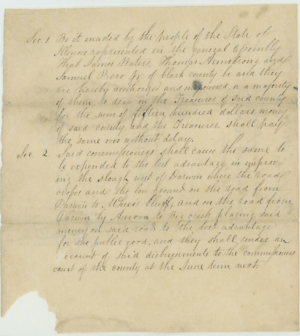 Sec. 1 Be it enacted by the people of the State of
Illinois represented in the general Assembly
That James Waters Thomas Armstrong and
Samuel Jr of Clark county be and they
are hereby authorized and empowered or a majority
of them to draw on the Treasurer of said county
for the sum of fifteen hundred dollars
of said county and the Treasurer shall pay
the same over without delay.
Sec 2. Said commissioners shall cause the same to
be expended to the best advantage in improv
ing the slough west of Darwin where the road
crosses and the low ground on the road from
Darwin to and on the road from
Darwin by to creek placing said
money on said road to the best advantage
for the public good, and they shall make an
account of their disbursements to the commissioners
court of the county at the June term next